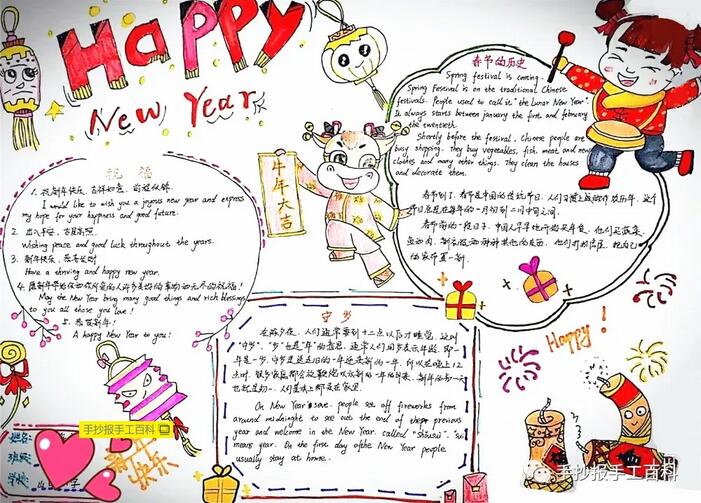 Happy
New Year
祝福
1. 祝新年快乐,吉祥如意,前程似锦.
I would like to wish you a joyous new year and express
my hope for your happiness and good future.
2. 出入平安,吉星高照
Wishing peace and good luck throughout the years.
3. 新年快乐,
Have a thriving and happy new year.
4. 愿新年带给你和你所爱的人许多美好的事物和无尽的祝福!
May the New Year bring many good things and rich blessings
to you all those you love!
5. 恭贺新年!
A happy New Year to you!
牛年大吉
春节的历史
Spring festival is coming.
Spring Festival is on the traditional Chinese
festivals. People used to call it "the Lunar New Year".
It always starts between january the first and february
the twentieth.
Shorely before the festival, Chinese people are
busy shopping. They buy vegetables, fish, meat and new
clothes and many other things. They clean the houses
and decorate them.
春节到了,春节是中国的传统节日,人们习惯上成为农历年,这个
节日总是在每年的一月初到二月中旬之间.
春节前的一段日子,中国人早早地开始买年货,他们买蔬菜、
鱼和肉、新衣服和种种其他的东西,他们打扫房屋,把自己
的家布置一新.
守岁
在除夕夜,人们通常要到十二点以后才睡觉,这叫
"守岁"."岁"也是"年"的意思,通常人们用岁表示年龄,即一
年是一岁.守岁是送走旧的一年迎来新的一年,所以在晚上12
点时,很多家庭都会放鞭炮以示新的一年的到来.新年的第一天
也就是初一,人们基本上都是在家里.
On New Year's eve, people set off fireworks from
around midnight to see out the end of the previous
year and welcome in the New Year, called "shousui". "Sui"
means year. On the first day of the New Year people
usually stay at home.
Happy!
手抄报手工百科
新年
快乐
手抄报手工百科